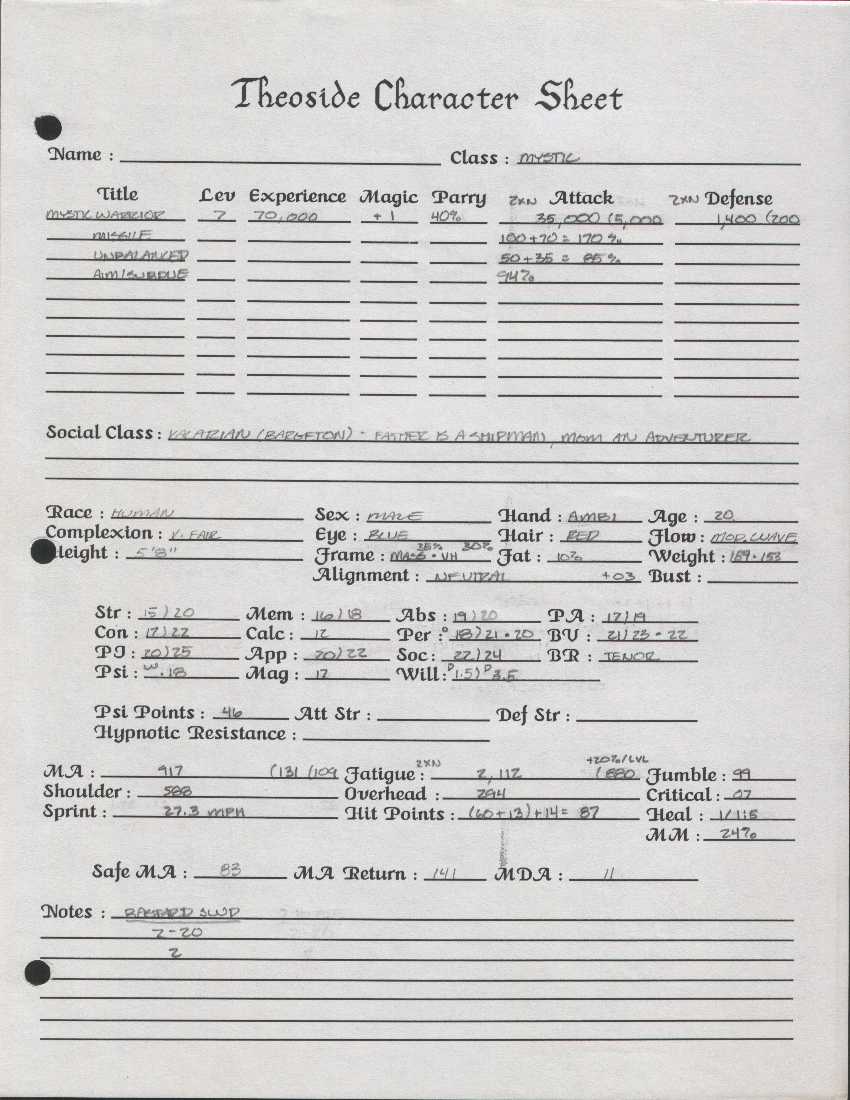 Theoside Character Sheet
Name : Class : MYSTIC
Title Lev Experience Magic Parry 2XN Attack 2XN Defense
MYSTIC WARRIOR 7 70,000 +1 40% 35,000 (5,000 1,400 (200
MISSILE 100+70 = 170%
UNBALANCED 50+35 = 85%
AIM/SUBDUE 94%
Social Class : VALARIAN (BARGETON) - FATHER IS A SHIPMAN, MOM AN ADVENTURER
Race : HUMAN Sex : MALE Hand : AMBI Age : 20
Complexion : V. FAIR Eye : BLUE Hair : RED Flow : MOD. WAVE
Height : 5'8" Frame : 35% 30% Fat : 10% Weight : 159 • 153
Alignment : NEUTRAL +03 Bust :
Str : 15)20 Mem : 16)18 Abs : 19)20 PA : 17)19
Con : 17)22 Calc : 12 Per : 18)21•20 BV : 21)23•22
PI : 20)25 App : 20)22 Soc : 22)24 BR : TENOR
Psi : .18 Mag : 17 Will : 1.5) 3.5
Psi Points : 46 Att Str : Def Str :
Hypnotic Resistance :
2XN +20%/LVL
MA : 917 (131 (109 Fatigue : 2,112 (880 Fumble : 99
Shoulder : 588 Overhead : 294 Critical : 07
Sprint : 27.3 MPH Hit Points : (60+13)+14= 87 Heal : 1/1:15
MM : 24%
Safe MA : 83 MA Return : 141 MDA : 11
Notes : BASTARD SWD
2-20
2